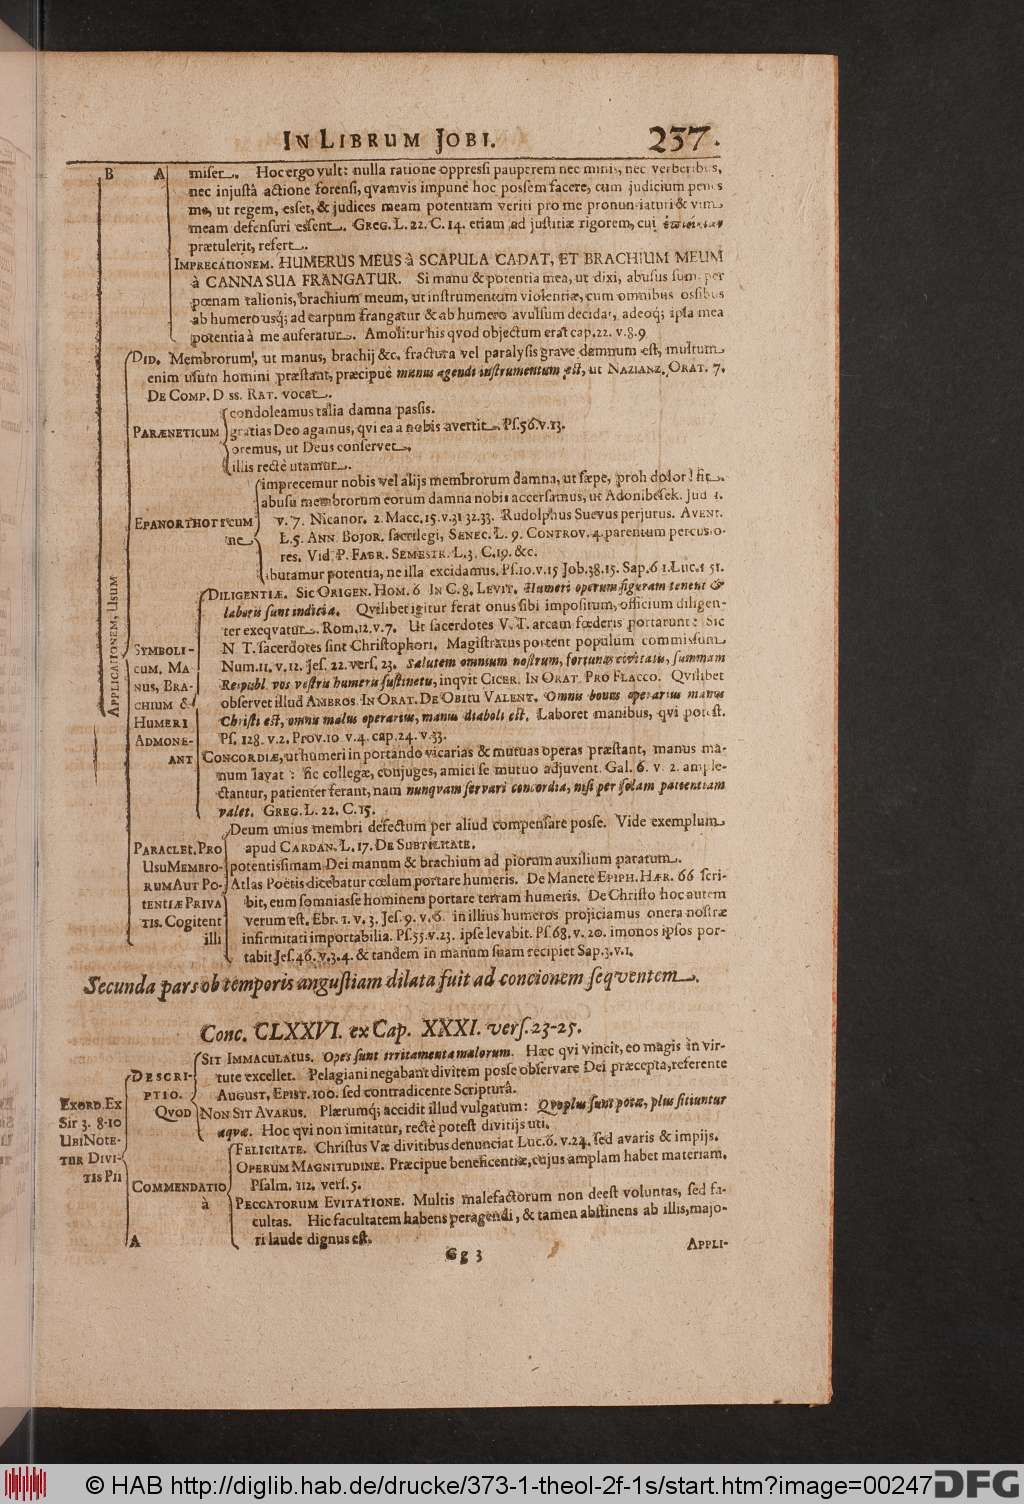 IN LIBRUM JOBI. 237.
B A miser. Hoc ergo vult: nulla ratione oppressi pauperem nec minis, nec verberibus,
nec injustâ actione forensi, qvamvis impune hoc possem facere, cum judicium penes
me, ut regem, esset, & judices meam potentiam veriti pro me pronunciaturi & vim
meam defensuri essent. GREG. L. 22. C. 14. etiam ad justitiæ rigorem, cui
prætulerit, refert.
IMPRECATIONEM. HUMERUS MEUS à SCAPULA CADAT, ET BRACHIUM MEUM
à CANNA SUA FRANGATUR. Si manu & potentia mea, ut dixi, abusus sum, per
pœnam talionis, brachium meum, ut instrumentum violentiæ, cum omnibus ossibus
ab humero usq; ad carpum frangatur & ab humero avulsum decidat, adeoq; ipsa mea
potentia à me auferatur. Amolitur his qvod objectum erat cap. 22. v. 8. 9
DID. Membrorum, ut manus, brachij &c. fractura vel paralysis grave damnum est, multum
enim usum homini præstant, præcipuè manus agendi instrumentum est, ut NAZIANZ. ORAT. 7.
DE COMP. D ss. RAT. vocat.
condoleamus talia damna passis.
PARÆNETICUM gratias Deo agamus, qvi ea à nobis avertit. Ps. 56. v. 13.
oremus, ut Deus conservet,
illis rectè utamur.
imprecemur nobis vel alijs membrorum damna, ut sæpe, proh dolor! fit.
abusu membrorum eorum damna nobis accersamus, ut Adonibesek. Jud 1.
EPANORTHOTICUM v. 7. Nicanor. 2. Macc. 15. v. 31 32. 33. Rudolphus Suevus perjurus. AVENT.
ne L. 5. ANN. BOJOR. sacrilegi, SENEC. L. 9. CONTROV. 4. parentum percusso-
res. Vid. P. FABR. SEMESTR. L. 3. C. 19. &c.
abutamur potentia, ne illa excidamus. Ps. 10. v. 15 Job. 38. 15. Sap. 6 1. Luc. 1 51.
APPLICATIONEM, USUM
DILIGENTIÆ. Sic ORIGEN. HOM. 6 IN C. 8. LEVIT. Humeri operum figuram tenent &
laboris sunt indicia. Qvilibet igitur ferat onus sibi impositum, officium diligen-
ter exeqvatur. Rom. 12. v. 7. Ut sacerdotes V. T. arcam fœderis portarunt: Sic
SYMBOLI- N T. sacerdotes sint Christophori. Magistratus portent populum commissum
CUM, MA- Num. 11. v. 12. Jes. 22. vers. 23. Salutem omnium nostrum, fortunas civitatis, summam
NUS, BRA- Reipubl. vos vestris humeris sustinetis, inqvit CICER. IN ORAT. PRO FLACCO. Qvilibet
CHIUM & observet illud AMBROS. IN ORAT. DE OBITU VALENT. Omnis bonus operarius manus
HUMERI Christi est, omnis malus operarius, manus diaboli est. Laboret manibus, qvi potest.
ADMONE- Ps. 128. v. 2. Prov. 10 v. 4. cap. 24. v. 33.
ANT CONCORDIÆ, ut humeri in portando vicarias & mutuas operas præstant, manus ma-
num lavat: sic collegæ, conjuges, amici se mutuo adjuvent. Gal. 6. v 2. ample-
ctantur, patienter ferant, nam nunqvam servari concordia, nisi per solam patientiam
valet. GREG. L. 22. C. 15.
Deum unius membri defectum per aliud compensare posse. Vide exemplum
PARACLET. PRO apud CARDAN. L. 17. DE SUBTILITATE.
USU MEMBRO- potentissimam Dei manum & brachium ad piorum auxilium paratum.
RUM AUT PO- Atlas Poëtis dicebatur cœlum portare humeris. De Manete EPIPH. HÆR. 66 scri-
TENTIÆ PRIVA bit, eum somniasse hominem portare terram humeris. De Christo hoc autem
TIS. Cogitent verum est. Ebr. 1. v. 3. Jes. 9. v. 6. in illius humeros projiciamus onera nostræ
illi infirmitati importabilia. Ps. 55. v. 23. ipse levabit. Ps. 68. v. 20. imo nos ipsos por-
tabit Jes. 46. v. 3. 4. & tandem in manum suam recipiet Sap. 3. v. 1.
Secunda pars ob temporis angustiam dilata fuit ad concionem seqventem.
Conc. CLXXVI. ex Cap. XXXI. vers. 23-25.
SIT IMMACULATUS. Opes sunt irritamenta malorum. Hæc qvi vincit, eo magis in vir-
DESCRI- tute excellet. Pelagiani negabant divitem posse observare Dei præcepta, referente
PTIO. AUGUST. EPIST. 100. sed contradicente Scripturâ.
EXORD. EX QVOD NON SIT AVARUS. Plærumq; accidit illud vulgatum: Qvo plus sunt potæ, plus sitiuntur
Sir 3. 8-10 aqvæ. Hoc qvi non imitatur, rectè potest divitijs uti.
UBI NOTE- FELICITATE. Christus Væ divitibus denunciat Luc. 6. v. 24. sed avaris & impijs.
TUR DIVI- OPERUM MAGNITUDINE. Præcipue beneficentiæ, cujus amplam habet materiam.
TIS PII COMMENDATIO Psalm. 112. vers. 5.
à PECCATORUM EVITATIONE. Multis malefactorum non deest voluntas, sed fa-
cultas. Hic facultatem habens peragendi, & tamen abstinens ab illis, majo-
A ri laude dignus est.
Gg 3 APPLI-
© HAB http://diglib.hab.de/drucke/373-1-theol-2f-1s/start.htm?image=00247 DFG